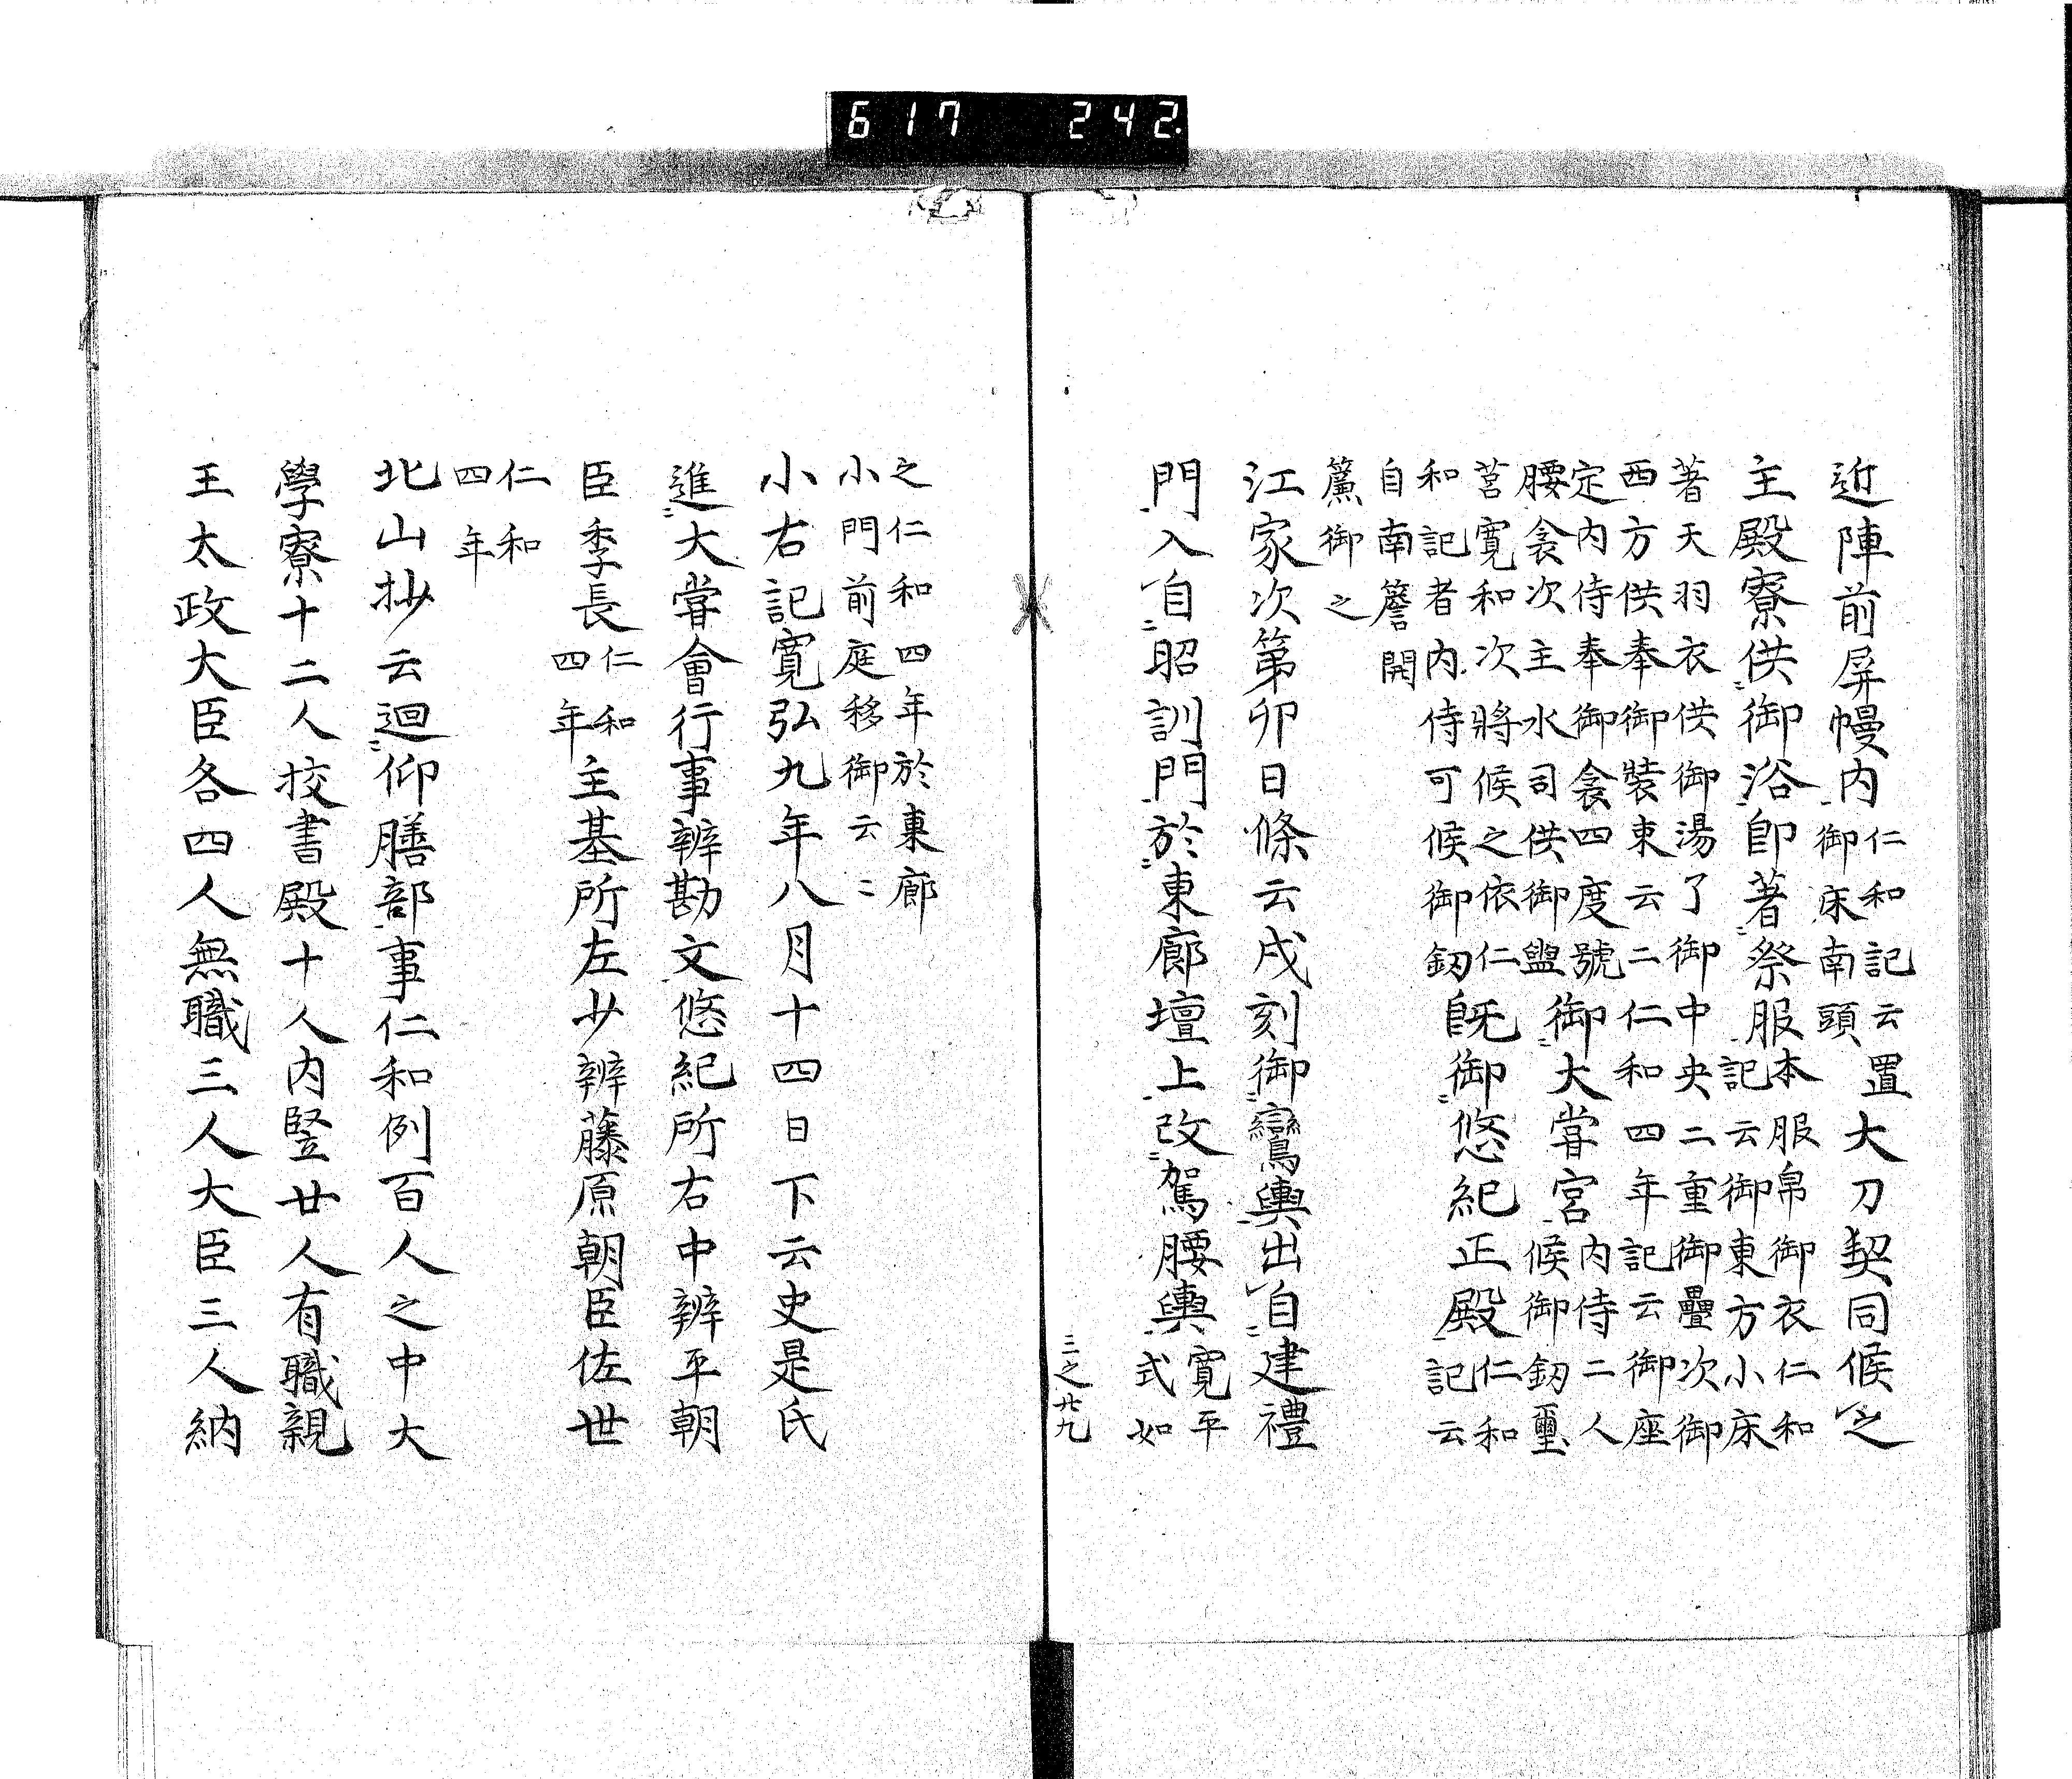 617 242.
近陣前屏幔内仁和記云御床南頭置大刀契同候之
主殿寮供御浴即著祭服本服帛御衣仁和記云御東方小床
著天羽衣供御湯了御中央二重御疊次御
西方供奉御装束云二仁和四年記云御座
定内侍奉御衾四度號腰衾次主水司供御盥御大甞宮内侍二人候御釼璽
筥寛和次將候之依仁和記者内侍可候御釼既御悠紀正殿仁和記云
自南簷開
簾御之
江家次第卯日條云戌刻御鸞輿出自建禮
門入自昭訓門於東廊壇上改駕腰輿寛平式如
三之廿九
之仁和四年於東廊
小門前庭移御云〻
小右記寛弘九年八月十四日下云史是氏
進大甞會行事辨勘文悠紀所右中辨平朝
臣季長仁和四年主基所左少辨藤原朝臣佐世
仁和
四年
北山抄云迴仰膳部事仁和例百人之中大
學寮十二人挍書殿十人内竪廿人有職親
王太政大臣各四人無職三人大臣三人納